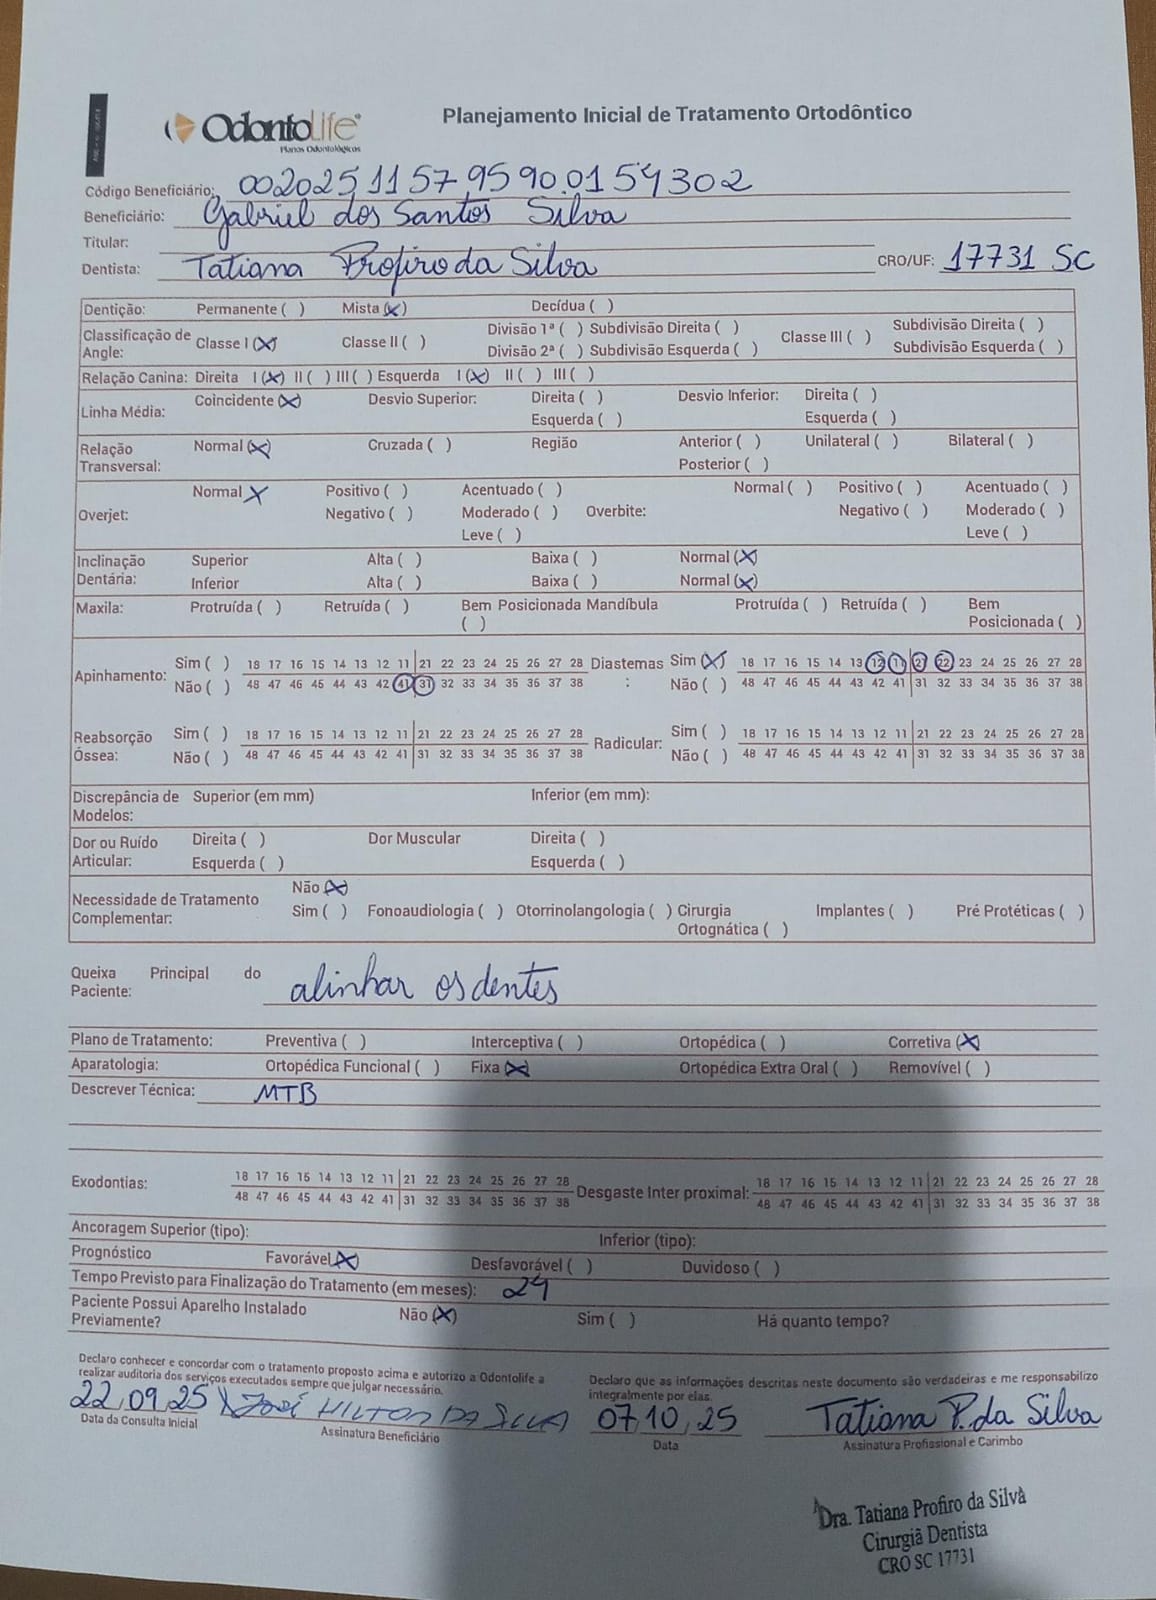 Odontolife
Planos Odontológicos
Planejamento Inicial de Tratamento Ortodôntico
Código Beneficiário: 00202511579590.0154302
Beneficiário: Gabriel dos Santos Silva
Titular:
Dentista: Tatiana Profiro da Silva CRO/UF: 17731 SC
Dentição: Permanente ( ) Mista (X) Decídua ( )
Classificação de Angle: Classe I (X) Classe II ( ) Divisão 1ª ( ) Subdivisão Direita ( ) Classe III ( ) Subdivisão Direita ( )
Divisão 2ª ( ) Subdivisão Esquerda ( ) Subdivisão Esquerda ( )
Relação Canina: Direita I (X) II ( ) III ( ) Esquerda I (X) II ( ) III ( )
Linha Média: Coincidente (X) Desvio Superior: Direita ( ) Desvio Inferior: Direita ( )
Esquerda ( ) Esquerda ( )
Relação Transversal: Normal (X) Cruzada ( ) Região Anterior ( ) Unilateral ( ) Bilateral ( )
Posterior ( )
Overjet: Normal X Positivo ( ) Acentuado ( ) Overbite: Normal ( ) Positivo ( ) Acentuado ( )
Negativo ( ) Moderado ( ) Negativo ( ) Moderado ( )
Leve ( ) Leve ( )
Inclinação Dentária: Superior Alta ( ) Baixa ( ) Normal (X)
Inferior Alta ( ) Baixa ( ) Normal (X)
Maxila: Protruída ( ) Retruída ( ) Bem Posicionada ( ) Mandíbula Protruída ( ) Retruída ( ) Bem Posicionada ( )
Apinhamento: Sim ( ) 18 17 16 15 14 13 12 11 21 22 23 24 25 26 27 28 Diastemas: Sim (X) 18 17 16 15 14 13 12 11 21 22 23 24 25 26 27 28
Não ( ) 48 47 46 45 44 43 42 41 31 32 33 34 35 36 37 38 Não ( ) 48 47 46 45 44 43 42 41 31 32 33 34 35 36 37 38
Reabsorção Óssea: Sim ( ) 18 17 16 15 14 13 12 11 21 22 23 24 25 26 27 28 Radicular: Sim ( ) 18 17 16 15 14 13 12 11 21 22 23 24 25 26 27 28
Não ( ) 48 47 46 45 44 43 42 41 31 32 33 34 35 36 37 38 Não ( ) 48 47 46 45 44 43 42 41 31 32 33 34 35 36 37 38
Discrepância de Modelos: Superior (em mm) Inferior (em mm):
Dor ou Ruído Articular: Direita ( ) Dor Muscular Direita ( )
Esquerda ( ) Esquerda ( )
Necessidade de Tratamento Complementar: Não (X)
Sim ( ) Fonoaudiologia ( ) Otorrinolangologia ( ) Cirurgia Ortognática ( ) Implantes ( ) Pré Protéticas ( )
Queixa Principal do Paciente: alinhar os dentes
Plano de Tratamento: Preventiva ( ) Interceptiva ( ) Ortopédica ( ) Corretiva (X)
Aparatologia: Ortopédica Funcional ( ) Fixa (X) Ortopédica Extra Oral ( ) Removível ( )
Descrever Técnica: MTB
Exodontias: 18 17 16 15 14 13 12 11 21 22 23 24 25 26 27 28 Desgaste Inter proximal: 18 17 16 15 14 13 12 11 21 22 23 24 25 26 27 28
48 47 46 45 44 43 42 41 31 32 33 34 35 36 37 38 48 47 46 45 44 43 42 41 31 32 33 34 35 36 37 38
Ancoragem Superior (tipo): Inferior (tipo):
Prognóstico Favorável (X) Desfavorável ( ) Duvidoso ( )
Tempo Previsto para Finalização do Tratamento (em meses): 24
Paciente Possui Aparelho Instalado Previamente? Não (X) Sim ( ) Há quanto tempo?
Declaro conhecer e concordar com o tratamento proposto acima e autorizo a Odontolife a
realizar auditoria dos serviços executados sempre que julgar necessário.
Declaro que as informações descritas neste documento são verdadeiras e me responsabilizo
integralmente por elas.
22,09,25 X José HILTON DA SILVA 07,10,25 Tatiana P. da Silva
Data da Consulta Inicial Assinatura Beneficiário Data Assinatura Profissional e Carimbo
Dra. Tatiana Profiro da Silva
Cirurgiã Dentista
CRO SC 17731